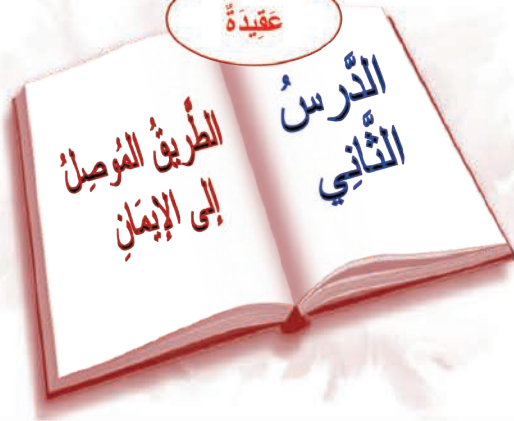 عَقِيدَةٌ
الدَّرسُ
الثَّانِي
الطَّرِيقُ المُوصِلُ
إلى الإيمَانِ